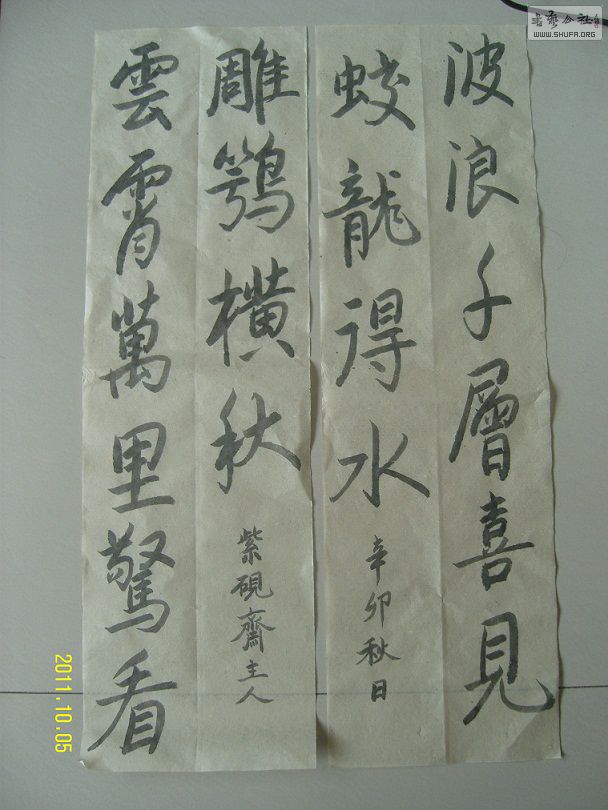 波浪千層喜見
蛟龍得水
辛卯秋日
雲霄萬里驚看
雕鶚橫秋
紫硯齋主人
2011.10.05
书艺公社
WWW.SHUFA.ORG